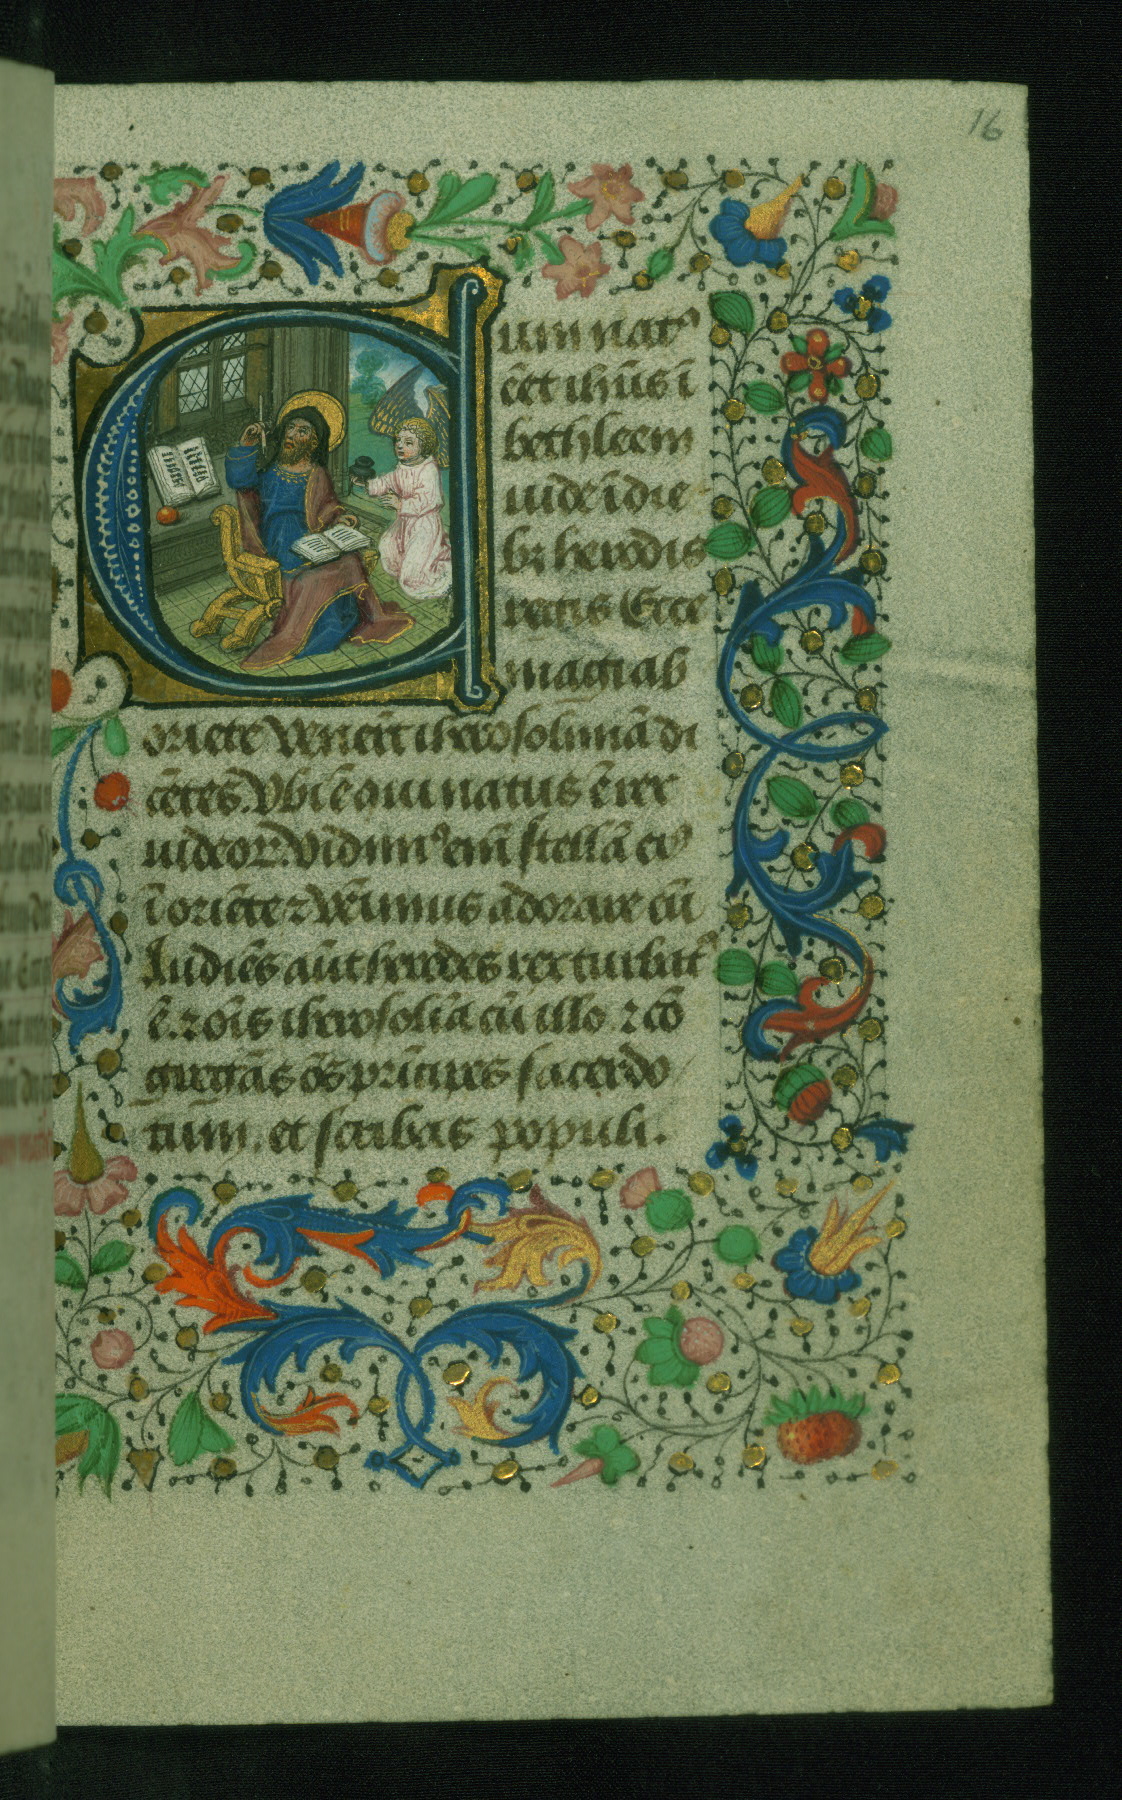 16
Cum natꝰ
eēt ihūs ī
bethleem
iude ī die
bꝫ herodis
regis Ecce
magi ab
oriēte venerūt iherosolimā di
cētes. Vbi ē qui natus ē rex
iudeoꝝ. Vidimꝰ enī stellā eiꝰ
ī oriēte ⁊ venimus adorare eū
Audiēs aūt herodes rex turbatꝰ
ē. ⁊ oīs iherosolīa cū illo. ⁊ cō
gregās oēs prīcipes sacerdo
tum. et scribas populi.